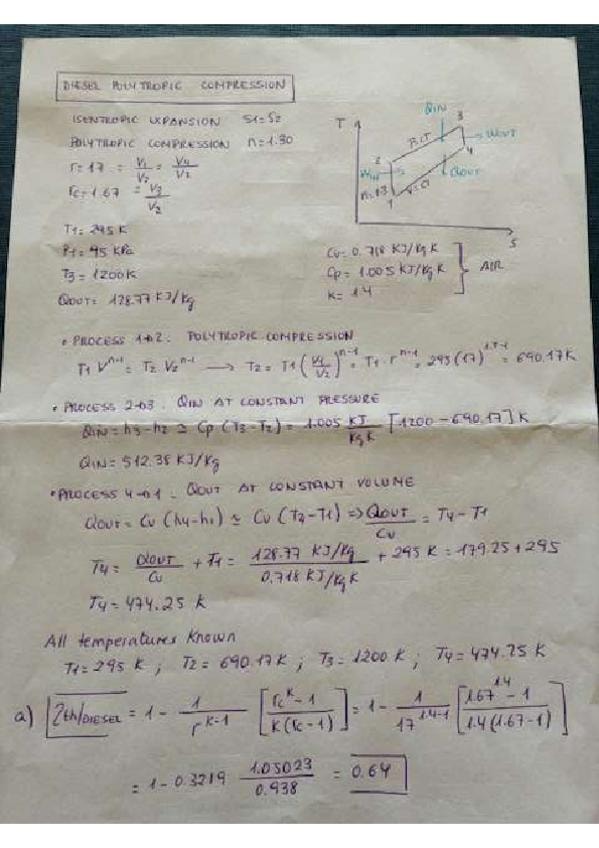 DIESEL POLYTROPIC COMPRESSION
ISENTROPIC EXPANSION S1=S2
POLYTROPIC COMPRESSION n=1.30
r=17 = V1/V2 = V4/V2
rc=1.67 = V3/V2
T1=295 K
P1=95 KPa
T3=1200K
QOUT= 128.77 KJ/Kg
T
QIN
3
B.C.T
WOUT
4
2
WIN
QOUT
n=1.3
V=O
1
S
CV=0.718 KJ/Kg K
CP=1.005 KJ/Kg K
K=1.4
AIR
• PROCESS 1→2: POLYTROPIC COMPRESSION
T1 V^n-1 = T2 V2^n-1 → T2 = T1 (V1/V2)^n-1 = T1 · r^n-1 = 293(17)^1.3-1 = 690.17K
• PROCESS 2→3. QIN AT CONSTANT PRESSURE
QIN= h3-h2 ≅ Cp (T3-T2) = 1.005 KJ/Kg K [1200-690.17] K
QIN= 512.38 KJ/Kg
• PROCESS 4→1. QOUT AT CONSTANT VOLUME
QOUT= CV (h4-h1) ≅ CV (T4-T1) => QOUT/CV = T4-T1
T4= QOUT/CV + T1 = 128.77 KJ/Kg / 0.718 KJ/Kg K + 295 K = 179.25+295
T4=474.25 K
All temperatures Known
T1=295 K ; T2= 690.17K ; T3= 1200 K ; T4= 474.25 K
a) ηth/DIESEL = 1 - 1/r^K-1 [rc^K - 1/K(rc-1)] = 1 - 1/17^1.4-1 [1.67^1.4 - 1/1.4(1.67-1)]
= 1-0.3219 1.05023/0.938 = 0.64